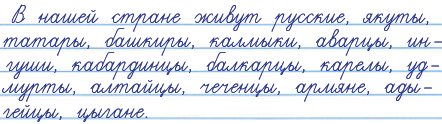 В нашей стране живут русские, якуты,
татары, башкиры, калмыки, аварцы, ин-
гуши, кабардинцы, балкарцы, карелы, уд-
мурты, алтайцы, чеченцы, армяне, ады-
гейцы, цыгане.